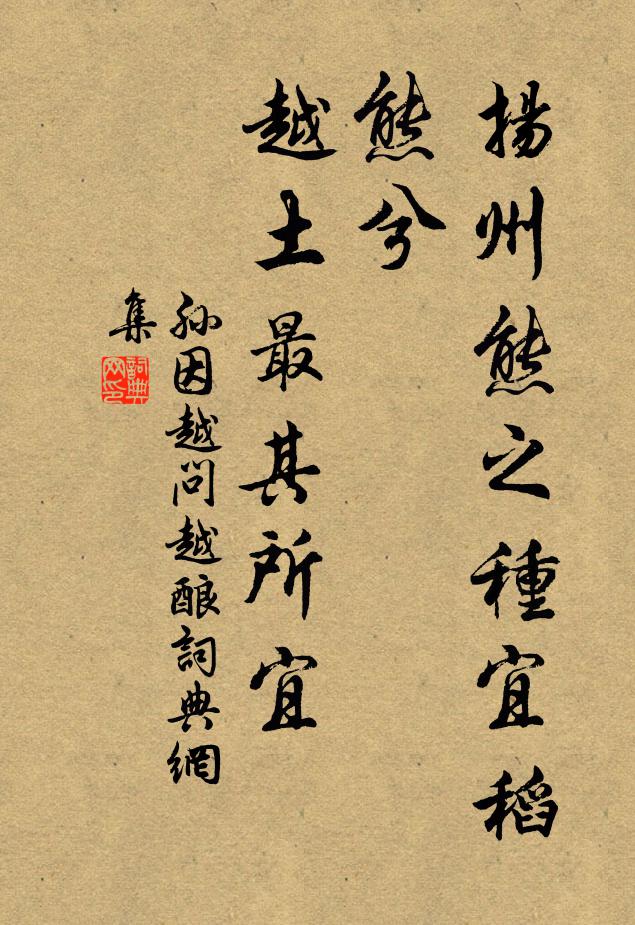 揚州熊之種宜稻
熊兮
越土最其所宜
孙因越問越酿詞典網
集
詞典
网印